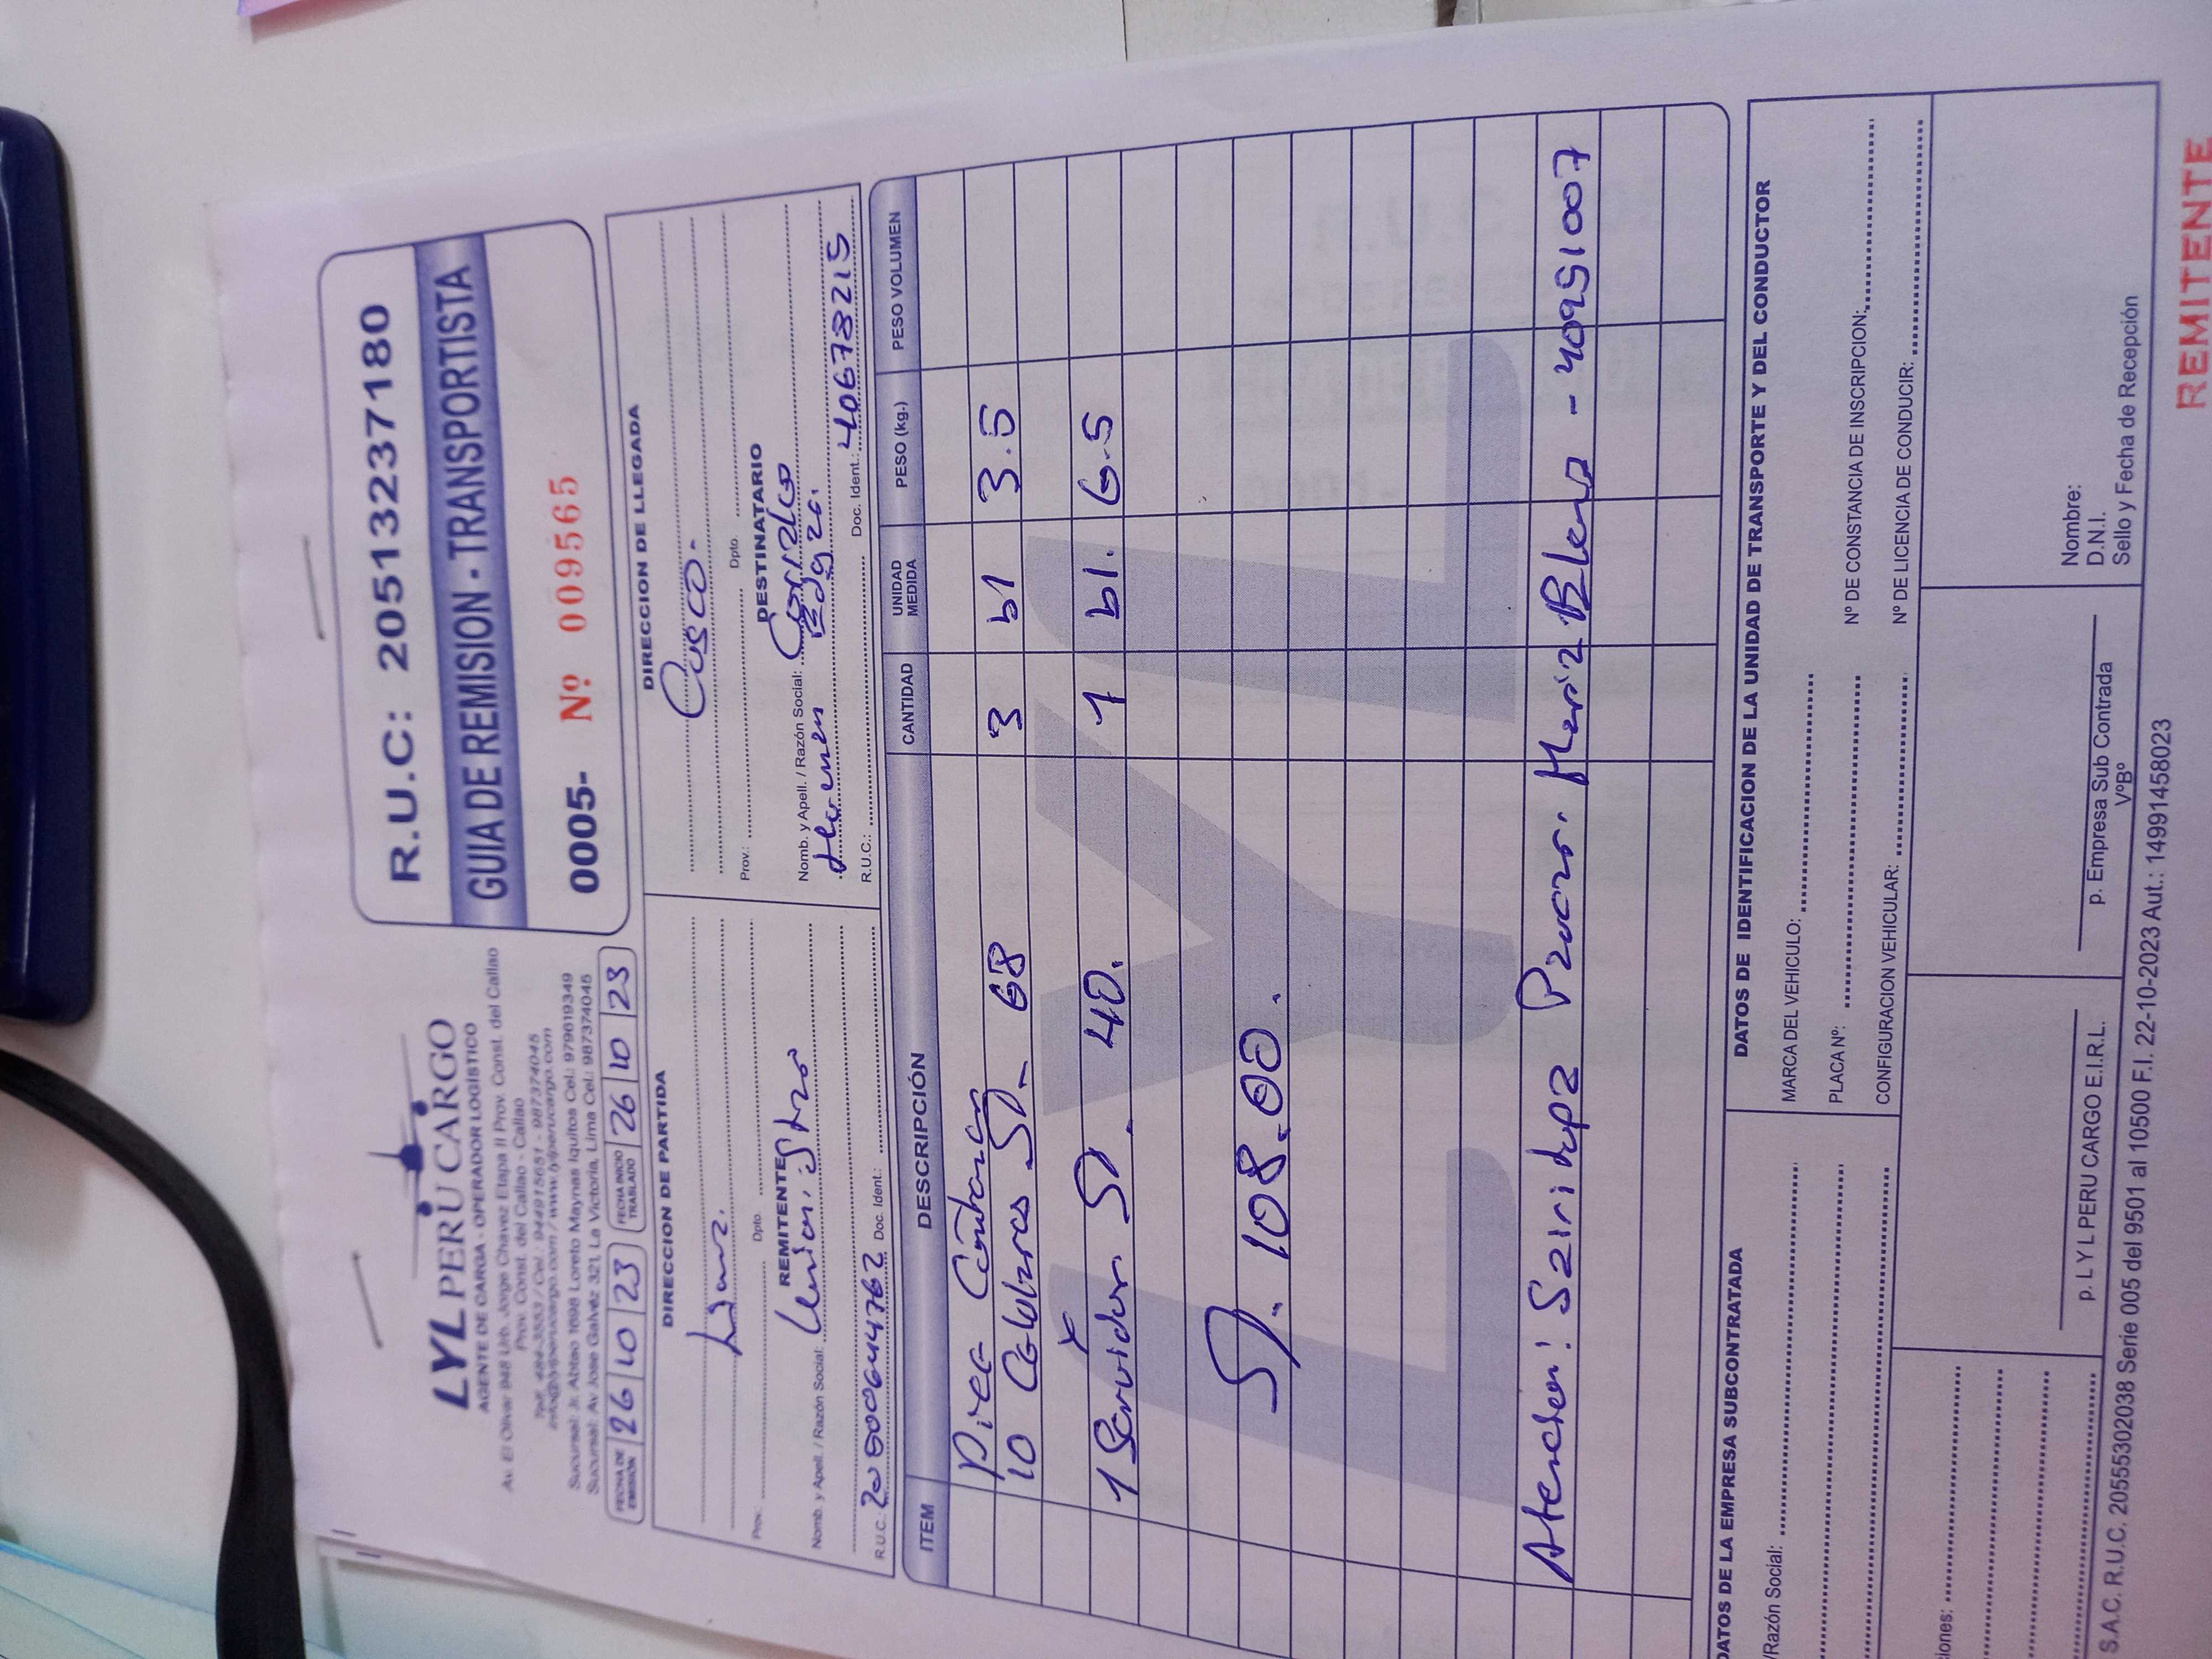 LYL PERU CARGO
AGENTE DE CARGA - OPERADOR LOGISTICO
Av. El Olivar 948 Urb. Jorge Chavez Etapa II Prov. Const. del Callao
Prov. Const. del Callao - Callao
Telf. 484-3553 / Cel.: 944915651 - 987374045
info@lylperucargo.com / www.lylperucargo.com
Sucursal: Jr. Abtao 1698 Loreto Maynas Iquitos Cel.: 979619349
Sucursal: Av Jose Galvez 321, La Victoria, Lima Cel.: 987374045
R.U.C: 20513237180
GUIA DE REMISION - TRANSPORTISTA
0005- Nº 009565
FECHA DE EMISIÓN 26 10 23 FECHA INICIO TRASLADO 26 10 23
DIRECCION DE PARTIDA
Lima.
Prov.: Dpto.
REMITENTE
Nomb. y Apell. / Razón Social:
R.U.C.: Doc. Ident.:
DIRECCION DE LLEGADA
Cusco.
Prov.: Dpto.
DESTINATARIO
Nomb. y Apell. / Razón Social:
Edgar.
Doc. Ident.: 40678215
R.U.C.:
ITEM DESCRIPCIÓN CANTIDAD UNIDAD MEDIDA PESO (kg.) PESO VOLUMEN
10 S/. 68 3 bl 3.5
1 Servidor S/. 40. 1 bl. 6.5
S/. 108.00.
Atencion: Sairidupa Paucar. Maria Elena - 40951007
DATOS DE LA EMPRESA SUBCONTRATADA
/Razón Social:
DATOS DE IDENTIFICACION DE LA UNIDAD DE TRANSPORTE Y DEL CONDUCTOR
MARCA DEL VEHICULO:
PLACA Nº: Nº DE CONSTANCIA DE INSCRIPCION:
CONFIGURACION VEHICULAR: Nº DE LICENCIA DE CONDUCIR:
ciones:
p. L Y L PERU CARGO E.I.R.L.
p. Empresa Sub Contrada
VºBº
Nombre:
D.N.I.
Sello y Fecha de Recepción
S.A.C. R.U.C. 20555302038 Serie 005 del 9501 al 10500 F.I. 22-10-2023 Aut.: 14991458023
REMITENTE